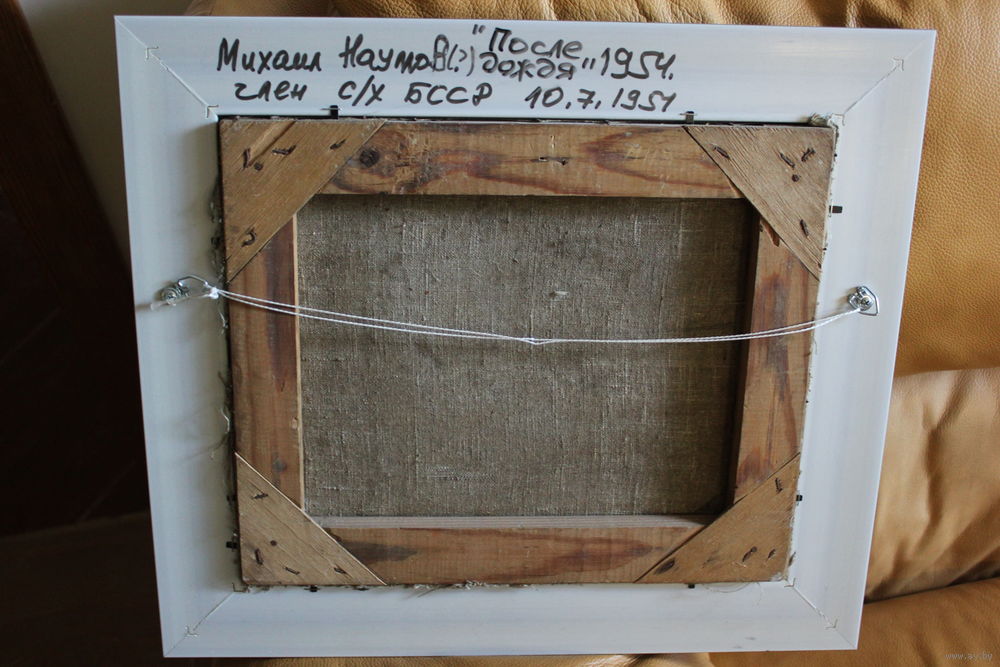 Михаил Наумов(?) "После дождя" 1954.
член с/х БССР 10.7.1951
www.ay.by